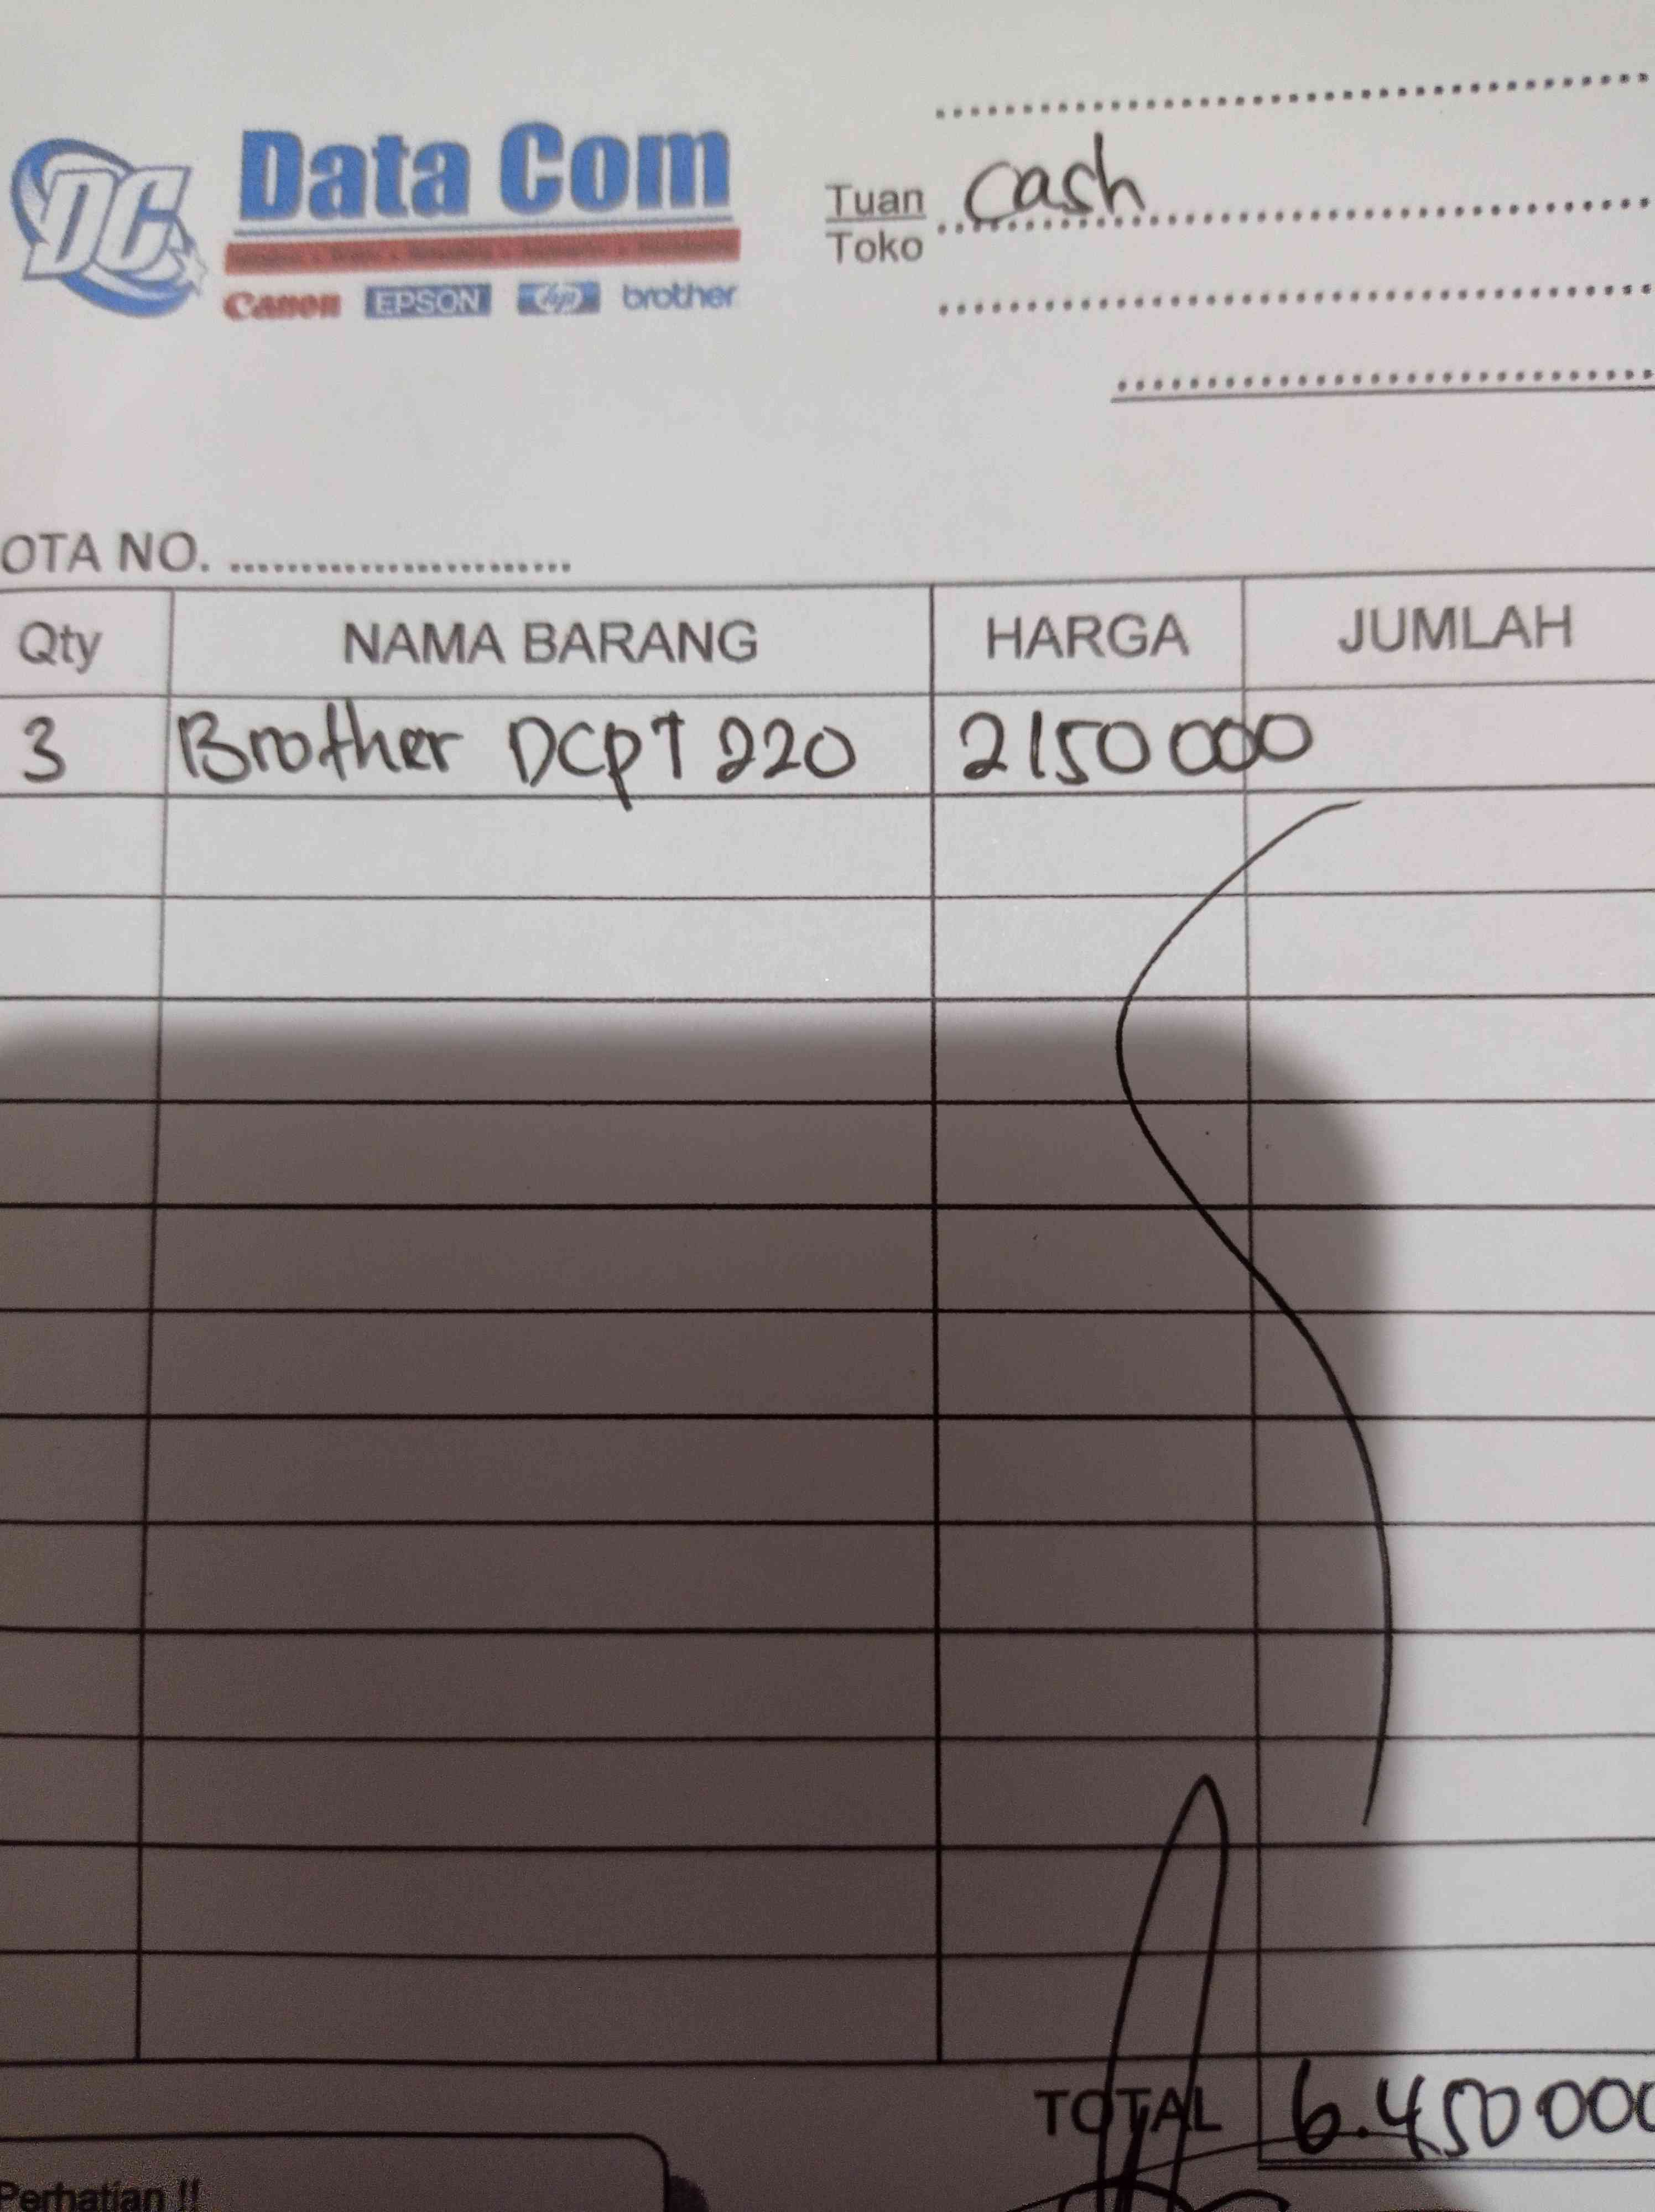 DC
Data Com
Canon EPSON hp brother
Tuan Cash
Toko
OTA NO.
Qty NAMA BARANG HARGA JUMLAH
3 Brother DCPT 220 2150 000
TOTAL 6.450 000
Perhatian !!